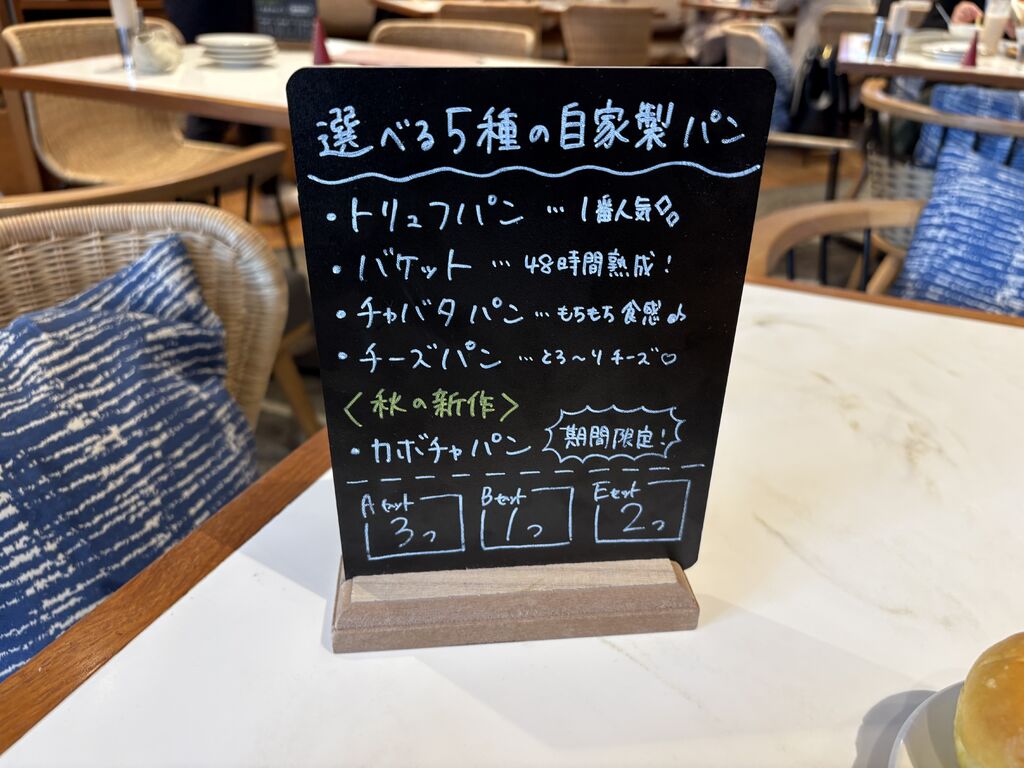 選べる5種の自家製パン
・トリュフパン … 1番人気
・バケット … 48時間熟成！
・チャバタパン … もちもち食感♪
・チーズパン … とろ〜りチーズ♡
〈秋の新作〉
・カボチャパン 期間限定！
Aセット 3つ
Bセット 1つ
Eセット 2つ